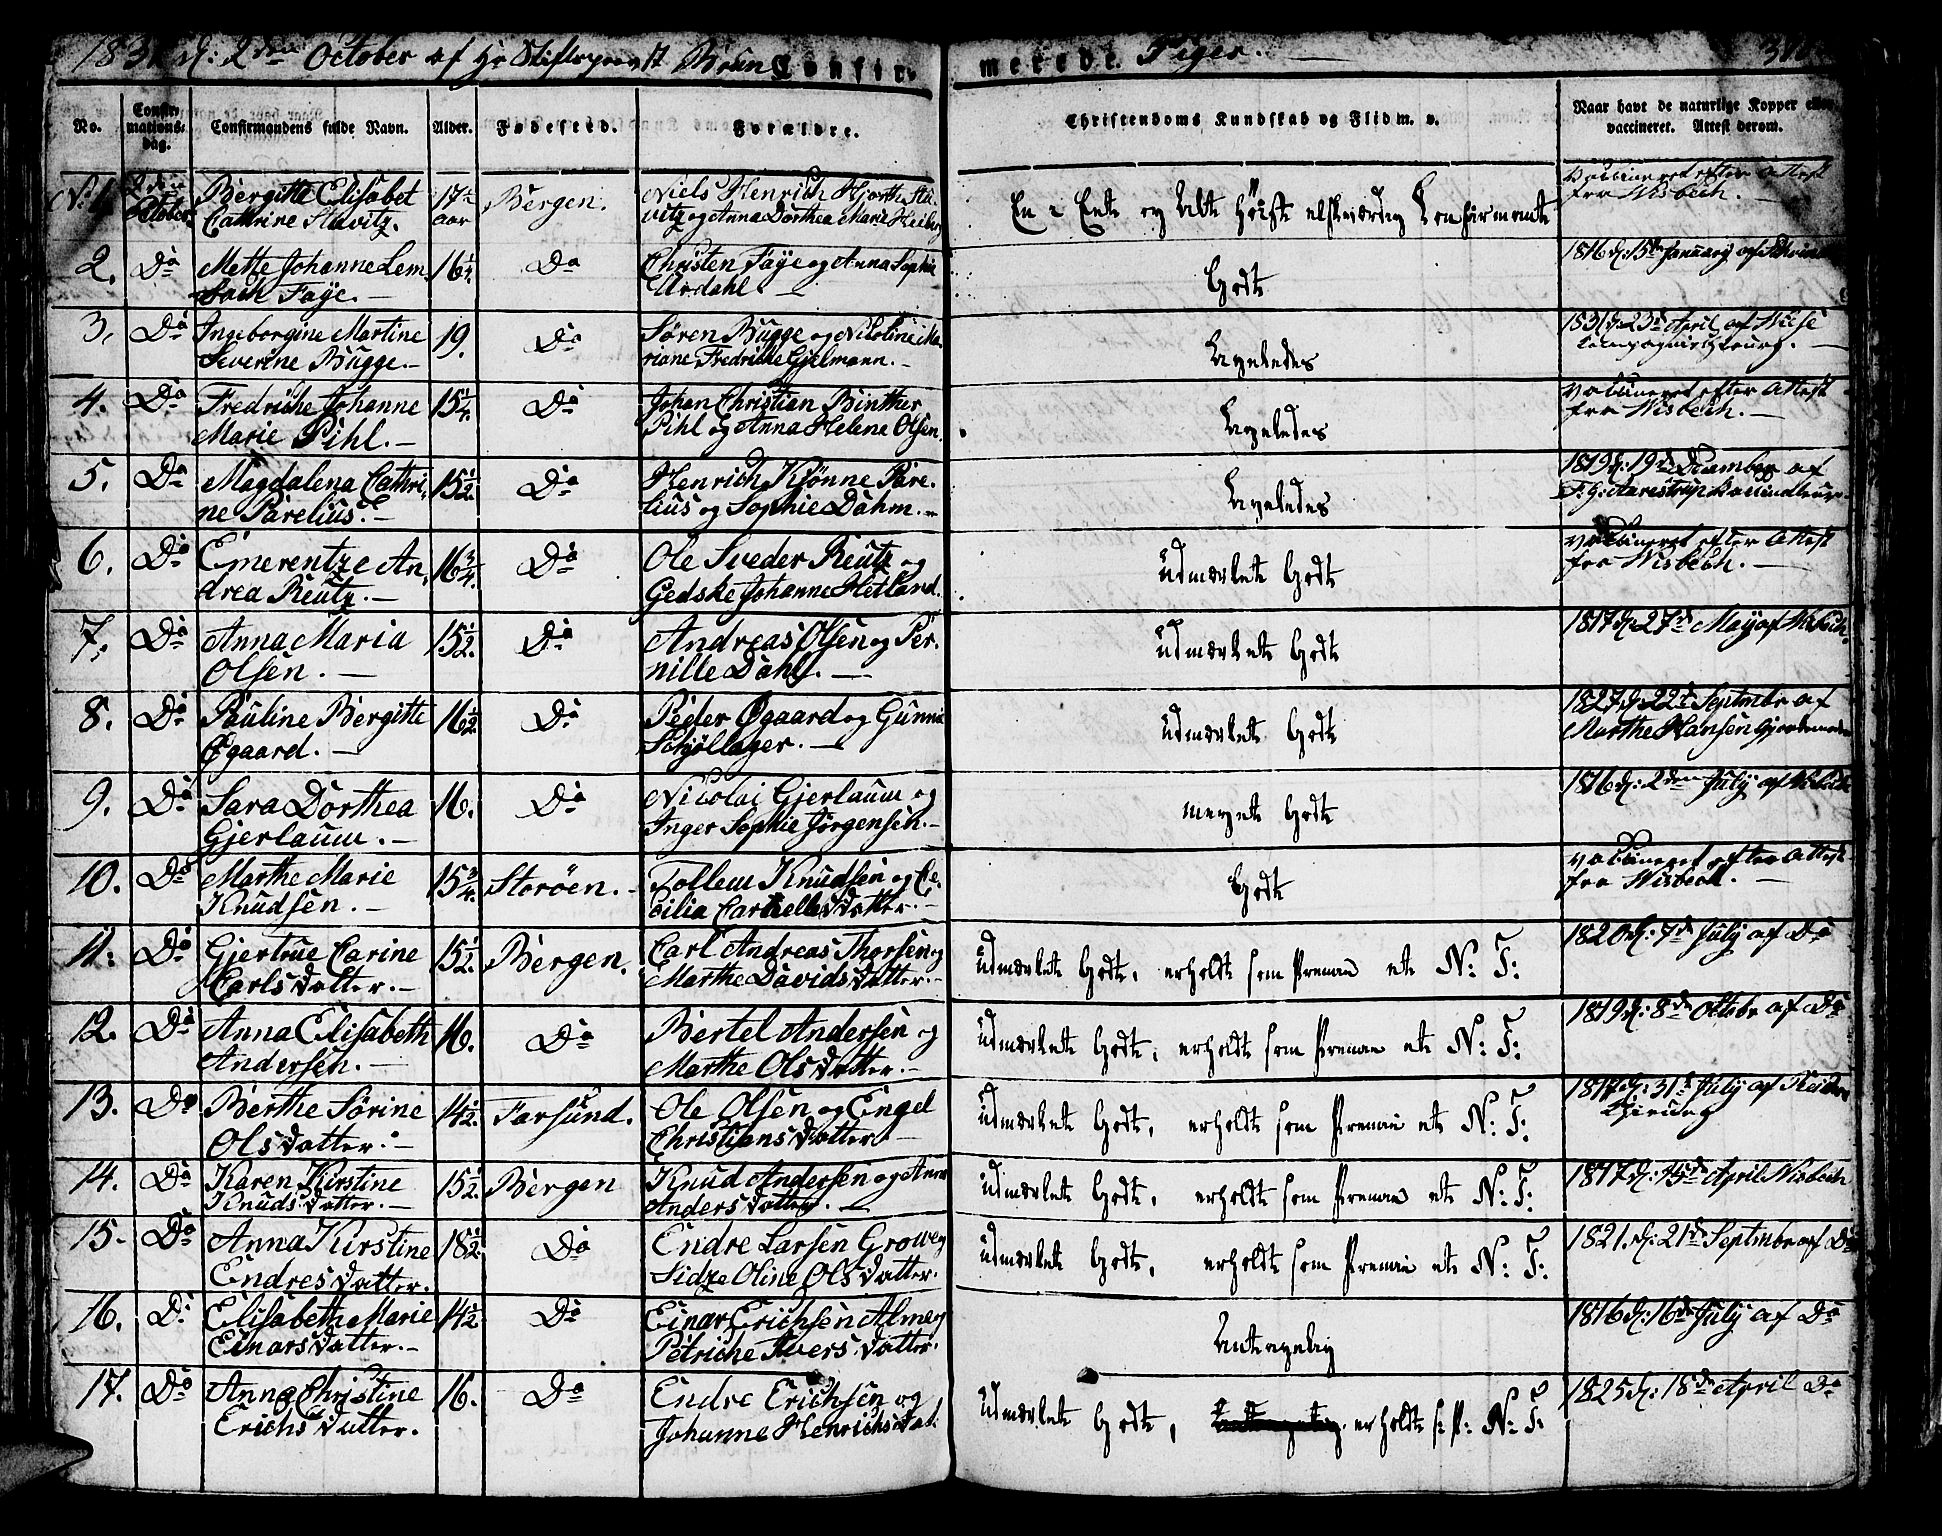 1831 d: 2den October af Hr Stiftsprovst Bruun Confir-
merede Piger.
No.
Confir-
mations-
dag.
Confirmandens fulde Navn.
Alder.
Fødested.
Forældre.
Christendoms Kundskab og Flid m. v.
Naar havt de naturlige Kopper eller
vaccineret. Attest derom.
No 1. 2den
October
Bergitte Elisabet
Cathrine Stawitz.
17½
aar
Bergen.
Niels Henrich Hjorth Sta-
witz og Anna Dorthea Marie Heiberg
En i Eet og Alt høist elskværdig Confirmant
Vaccineret efter Attest
fra Wisbech.
2. Do
Mette Johanne Lem-
bach Faye.
16¼.
Do
Christen Faye og Anna Sophie
Ardahl.
Godt
1816 d: 15de January af
3. Do
Ingeborgine Martine
Severine Bugge.
19.
Do
Søren Bugge og Nicoline Ma-
riane Fredrikke Gjelmann.
Ligeledes
1831 d. 23d April af Wiese
Compagniechirurg.
4. Do
Fredriche Johanne
Marie Pihl.
15¼.
Do
Johan Christian Binther
Pihl og Anna Helene Olsen.
Ligeledes
Vaccineret efter Attest
fra Wisbech.
5. Do
Magdalena Cathri-
ne Parelius.
15½.
Do
Henrich Kjønne Pare-
lius og Sophie Dahm.
Ligeledes
1819 d: 19de December af
F: G: Aarestrup
6. Do
Emerentze An-
drea Reutz.
16¾.
Do
Ole Sveder Reutz og
Gedske Johanne Hetland.
Udmærket Godt
Vaccineret efter Attest
fra Wisbech.
7. Do
Anna Maria
Olsen.
15½.
Do
Andreas Olsen og Per-
nille Dahl.
Udmærket Godt
1817 d: 27de May af Wisbech.
8. Do
Pauline Bergitte
Øgaard.
16½.
Do
Peder Øgaard og Gunnil
Schjøllager.
Udmærket Godt
1827 d: 22de Septmbr af
Marthe Hansen Gjordemoder
9. Do
Sara Dorthea
Gjerlaum.
16.
Do
Nicolai Gjerlaum og
Inger Sophie Jørgensen.
meget Godt
1816 d: 2den July af Wisbech
10. Do
Marthe Marie
Knudsen.
15¾.
Storøen.
Tollem Knudsen og Ce-
cilia Datter.
Godt
Vaccineret efter Attest
fra Wisbech.
11. Do
Gjertrue Carine
Carlsdatter.
15½.
Bergen.
Carl Andreas Thorsen og
Marthe Davidsdatter.
Udmærket Godt, erholdt som Præmie et N: T:
1820 d: 7de July af Do
12. Do
Anna Elisabeth
Andersen.
16.
Do
Bertel Andersen og
Marthe Olsdatter.
Udmærket Godt, erholdt som Præmie et N: T:
1819 d: 8de Octobr af Do
13. Do
Berthe Sørine
Olsdatter.
14½.
Farsund.
Ole Olsen og Engel
Christiansdatter.
Udmærket Godt, erholdt som Præmie et N: T:
1817 d: 31te July af
Chirurg
14. Do
Karen Kirstine
Knudsdatter.
15½.
Bergen
Knud Andersen og Anne
Andersdatter.
Udmærket Godt, erholdt som Præmie et N: T:
1817 d: April Wisbech
15. Do
Anna Kirstine
Endresdatter.
18½.
Do
Endre Larsen Grow og
Sidze Oline Olsdatter.
Udmærket Godt, erholdt som Præmie et N: T:
1821. d: 21de Septmbr af Do
16. Do
Elisabeth Marie
Einarsdatter.
14½
Do
Einar Erichsen Alm og
Petriche Iversdatter.
Antagelig
1816 d: 16de July af Do
17. Do
Anna Christine
Erichsdatter.
16.
Do
Endre Erichsen og
Johanne Henrichsdat:
Udmærket Godt, erholdt s: P: N: T:
1825 d: 18de April Do